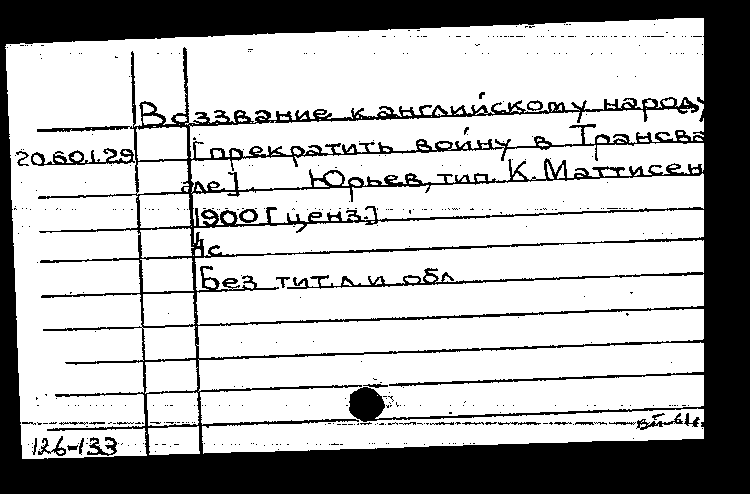 Воззвание к английскому народу
20.60.1.29 [прекратить войну в Трансва
але]. Юрьев, тип. К. Маттисен
1900 [ценз.]
4с
Без тит.л. и обл
126-133